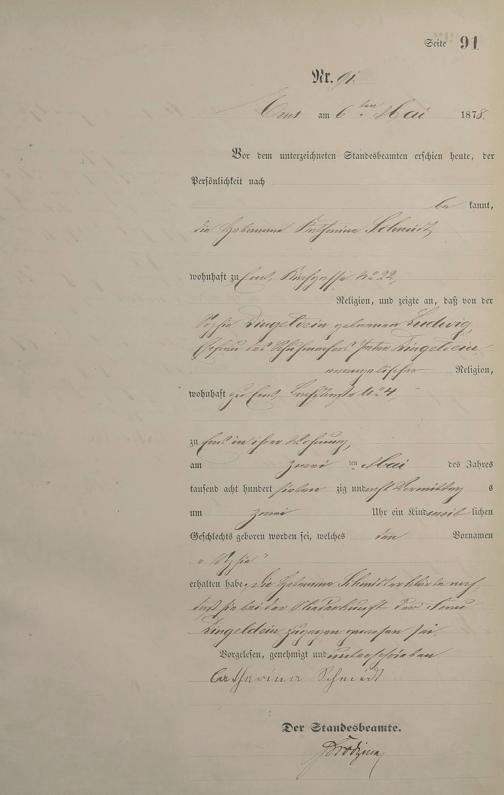 Seite 91
Nr. 91.
Ems am 6ten Mai 1878.
Vor dem unterzeichneten Standesbeamten erschien heute, der
Persönlichkeit nach
be kannt,
die Hebamme Katharina Schmidt,
wohnhaft zu Ems, Kirchgasse No 22,
Religion, und zeigte an, daß von der
Sophie Ringelstein geborenen Ludwig,
Ehefrau des Schuhmachers Peter Ringelstein
evangelischer Religion,
wohnhaft zu Ems, No 4,
zu Ems in ihrer Wohnung,
am zwei ten Mai des Jahres
tausend acht hundert sieben zig und acht Vormittag s
um zwei Uhr ein Kind weib lichen
Geschlechts geboren worden sei, welches den Vornamen
„Sophie"
erhalten habe. Die Hebamme Schmidt erklärte noch,
daß sie bei der Niederkunft der Frau
Ringelstein zugegen gewesen sei.
Vorgelesen, genehmigt und unterschrieben
Catharina Schmidt
Der Standesbeamte.